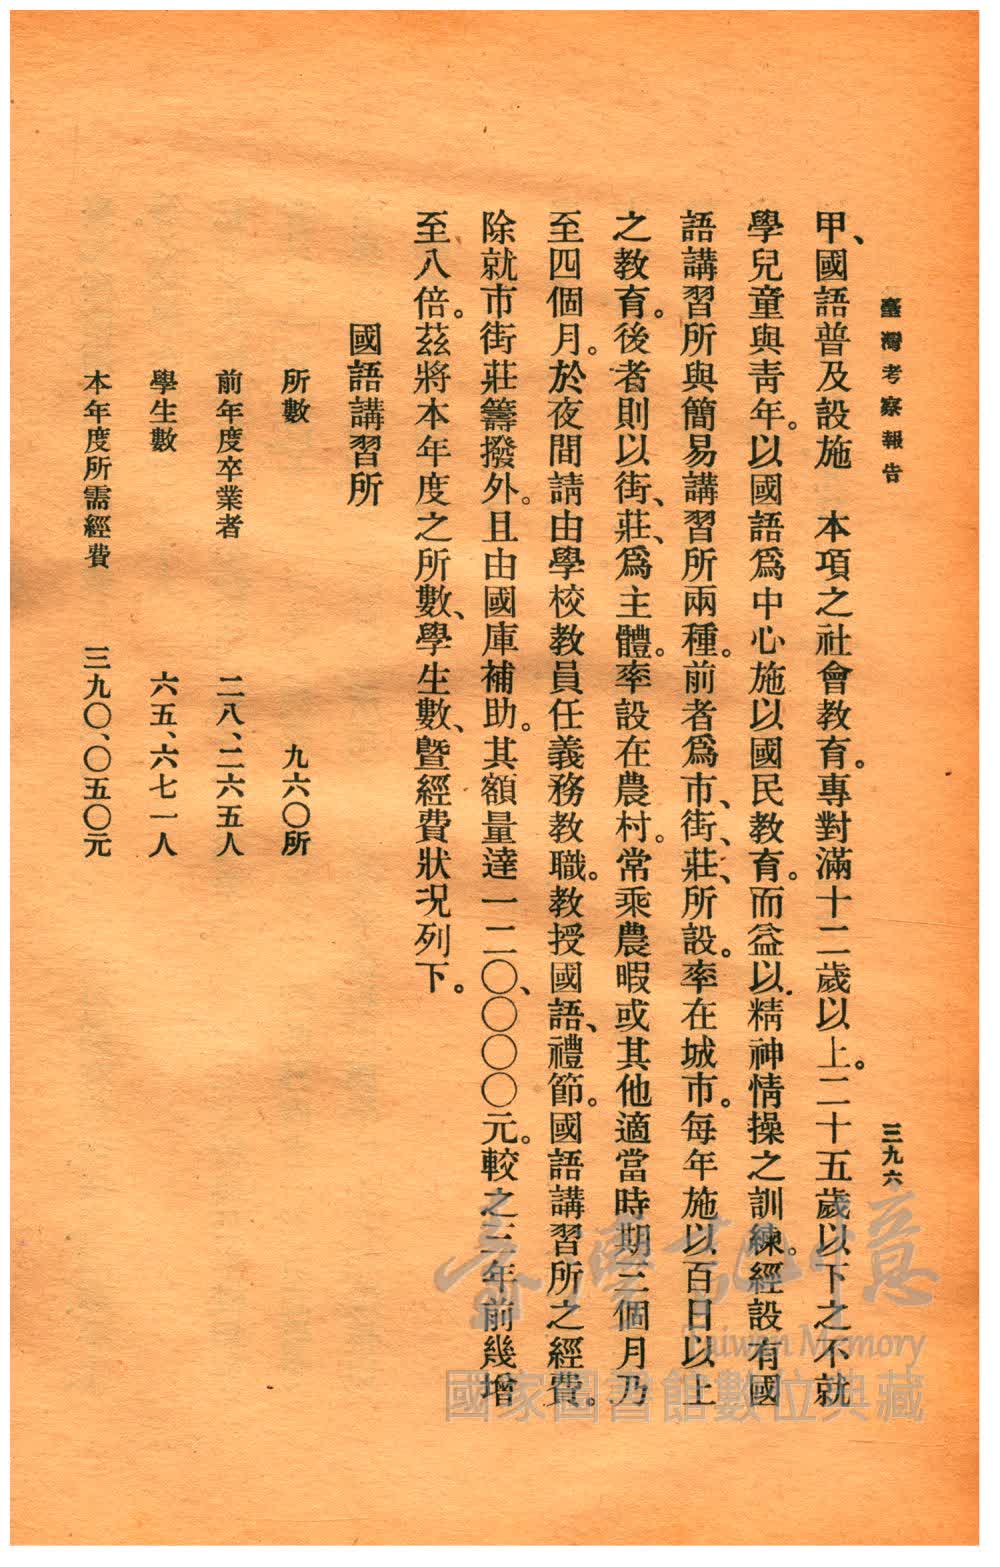 臺灣考察報告
三九六
甲、國語普及設施　本項之社會教育。專對滿十二歲以上。二十五歲以下之不就
學兒童與靑年。以國語爲中心施以國民敎育。而益以精神情操之訓練。經設有國
語講習所與簡易講習所兩種。前者爲市、街、莊、所設。率在城市。每年施以百日以上
之敎育。後者則以街、莊、爲主體。率設在農村。常乘農暇或其他適當時期三個月乃
至四個月。於夜間請由學校敎員任義務敎職。敎授國語、禮節。國語講習所之經費。
除就市街莊籌撥外。且由國庫補助。其額量達一二〇、〇〇〇元。較之三年前幾增
至八倍。茲將本年度之所數、學生數、曁經費狀況列下。
國語講習所
所數　九六〇所
前年度卒業者　二八、二六五人
學生數　六五、六七一人
本年度所需經費　三九〇、〇五〇元
臺灣記憶
Taiwan Memory
國家圖書館數位典藏